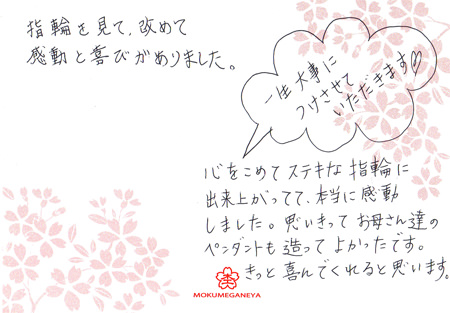 指輪を見て、改めて
感動と喜びがありました。
一生大事に
つけさせて
いただきます♡
心をこめてステキな指輪に
出来上がってて、本当に感動
しました。思いきってお母さん達の
ペンダントも造ってよかったです。
きっと喜んでくれると思います。
MOKUMEGANEYA